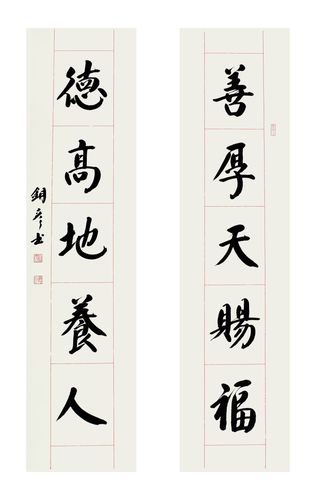 善厚天賜福
德高地養人